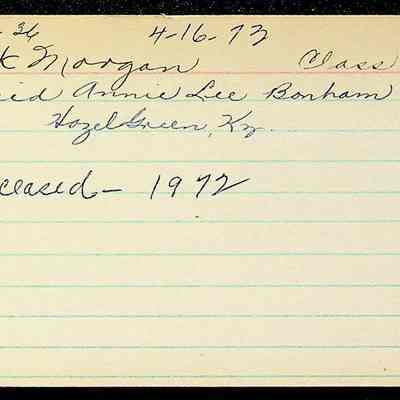 - 36 4-16-73
k Morgan Class
ied Annie Lee Bonham
Hazel Green, Ky.
ceased - 1972